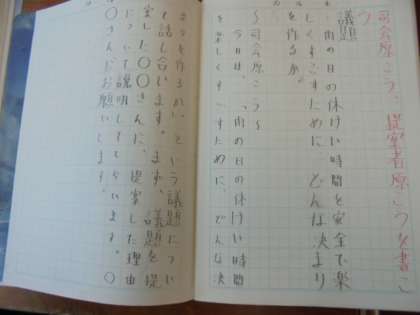 司会原こう、提案者原こうを書こ
う
議題
雨の日の休けい時間を安全で楽
しくすごすために、どんな決まり
を作るか。
～司会原こう～
今日は、「雨の日の休けい時間
を楽しくすごすために、どんな決
まりを作るか」という議題につい
て話し合います。まず、議題を提
案した〇〇さんに、提案した理由
について説明してもらいます。〇
〇さんお願いします。